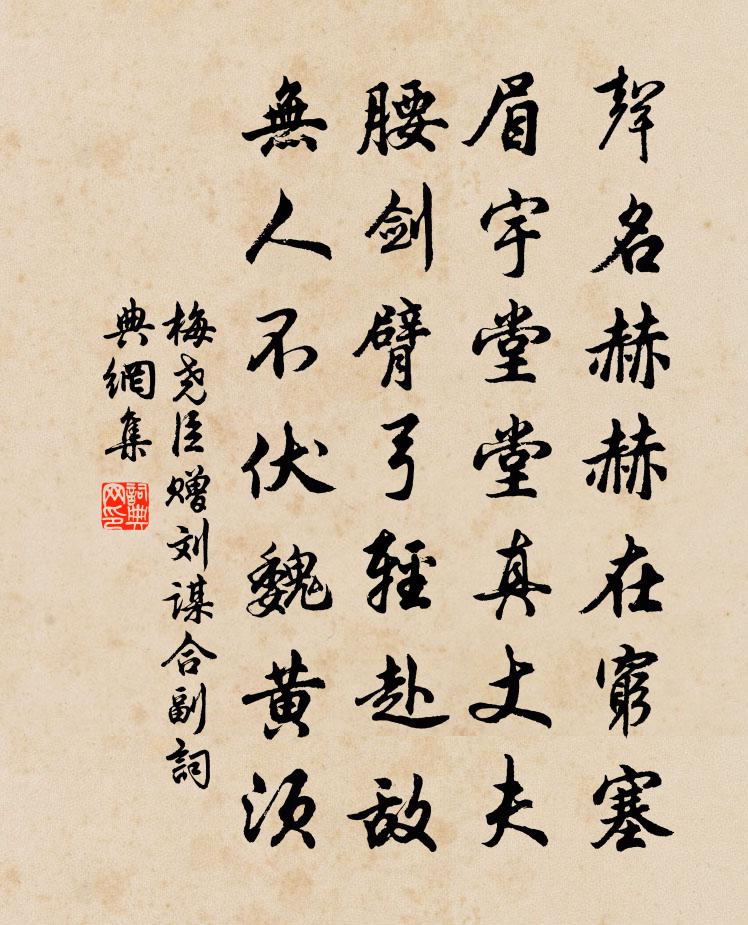 聲名赫赫在窮塞
眉宇堂堂真丈夫
腰剑臂弓輕赴敌
無人不伏魏黄须
梅尧臣赠刘谋合副詞
典網集
詞典网印